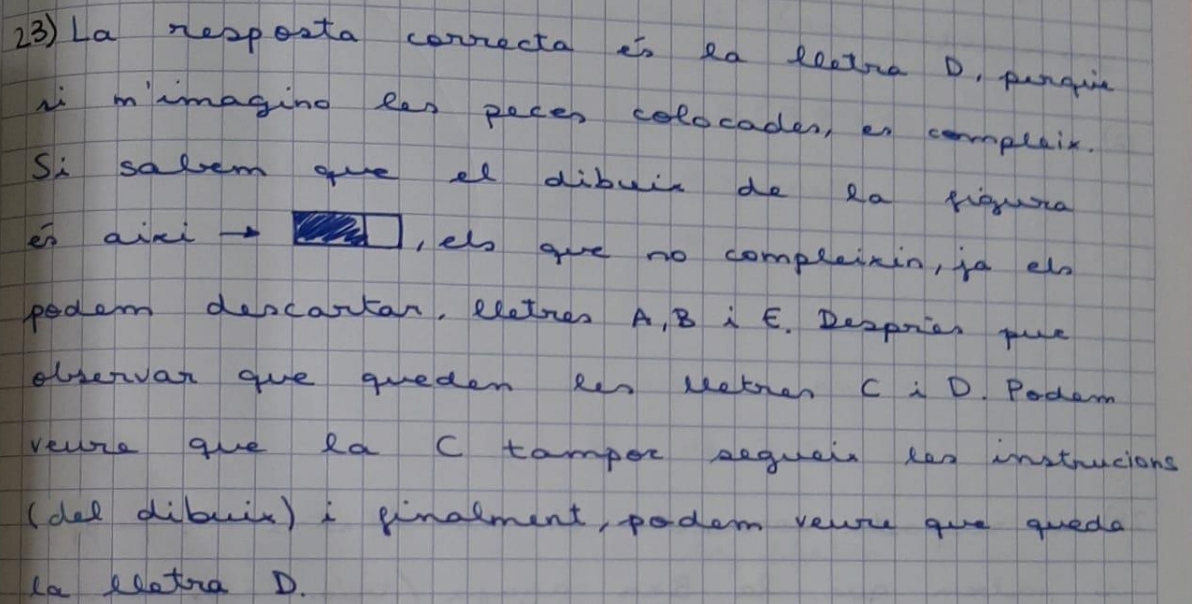 23) La resposta correcta és la lletra D, perquè
si m'imagino les peces colocades, es compleix.
Si sabem que el dibuix de la figura
és aixi → , els que no compleixin, ja els
podem descartar, lletres A, B i E. Després puc
observar que queden les lletres C i D. Podem
veure que la C tampoc segueix les instrucions
(del dibuix) i finalment, podem veure que queda
la lletra D.